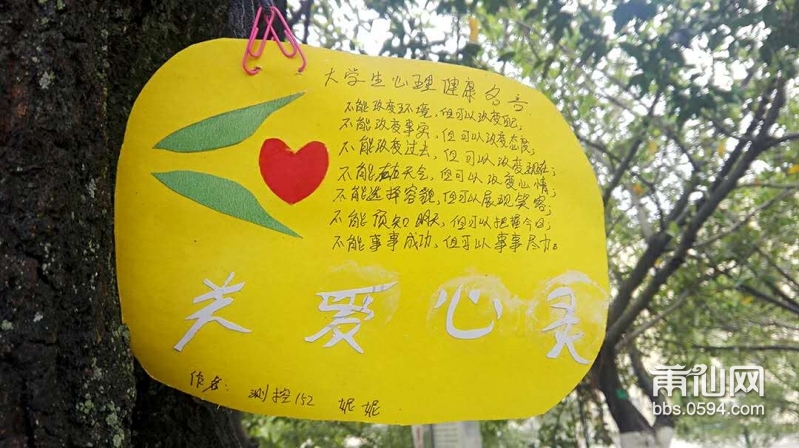 大学生心理健康名言
不能改变环境,但可以改变自己;
不能改变事实,但可以改变态度;
不能改变过去,但可以改变现在;
不能左右天气,但可以改变心情;
不能选择容貌,但可以展现笑容;
不能预知明天,但可以把握今日;
不能事事成功,但可以事事尽力。
关爱心灵
作者: 测控152 妮妮
莆仙网
bbs.0594.com